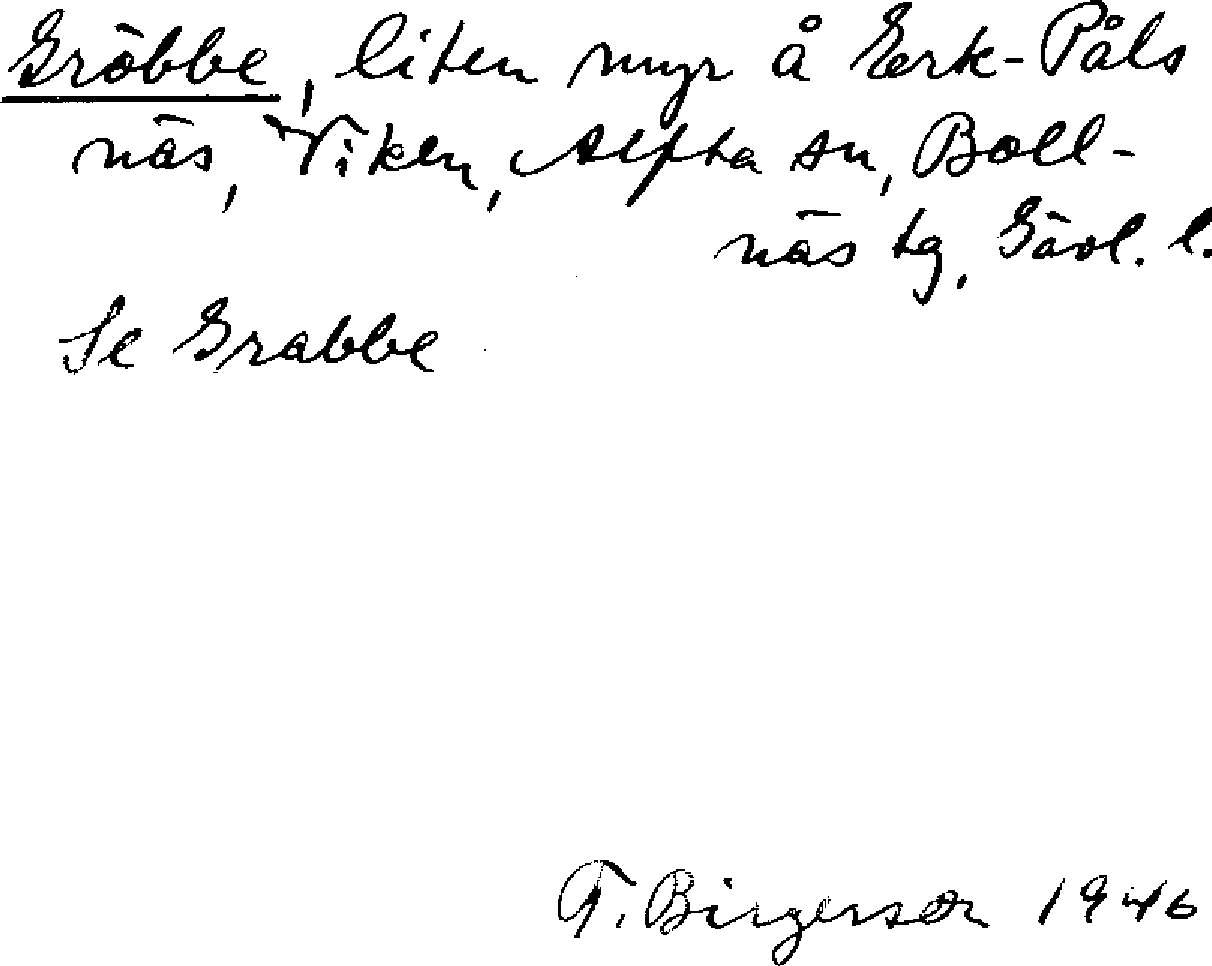 Gröbbe, liten myr å Eerk-Påls
näs, Viken, Alfta sn, Boll-
näs tg, Gävl. l.
Se Grabbe
T. Birgerson 1946